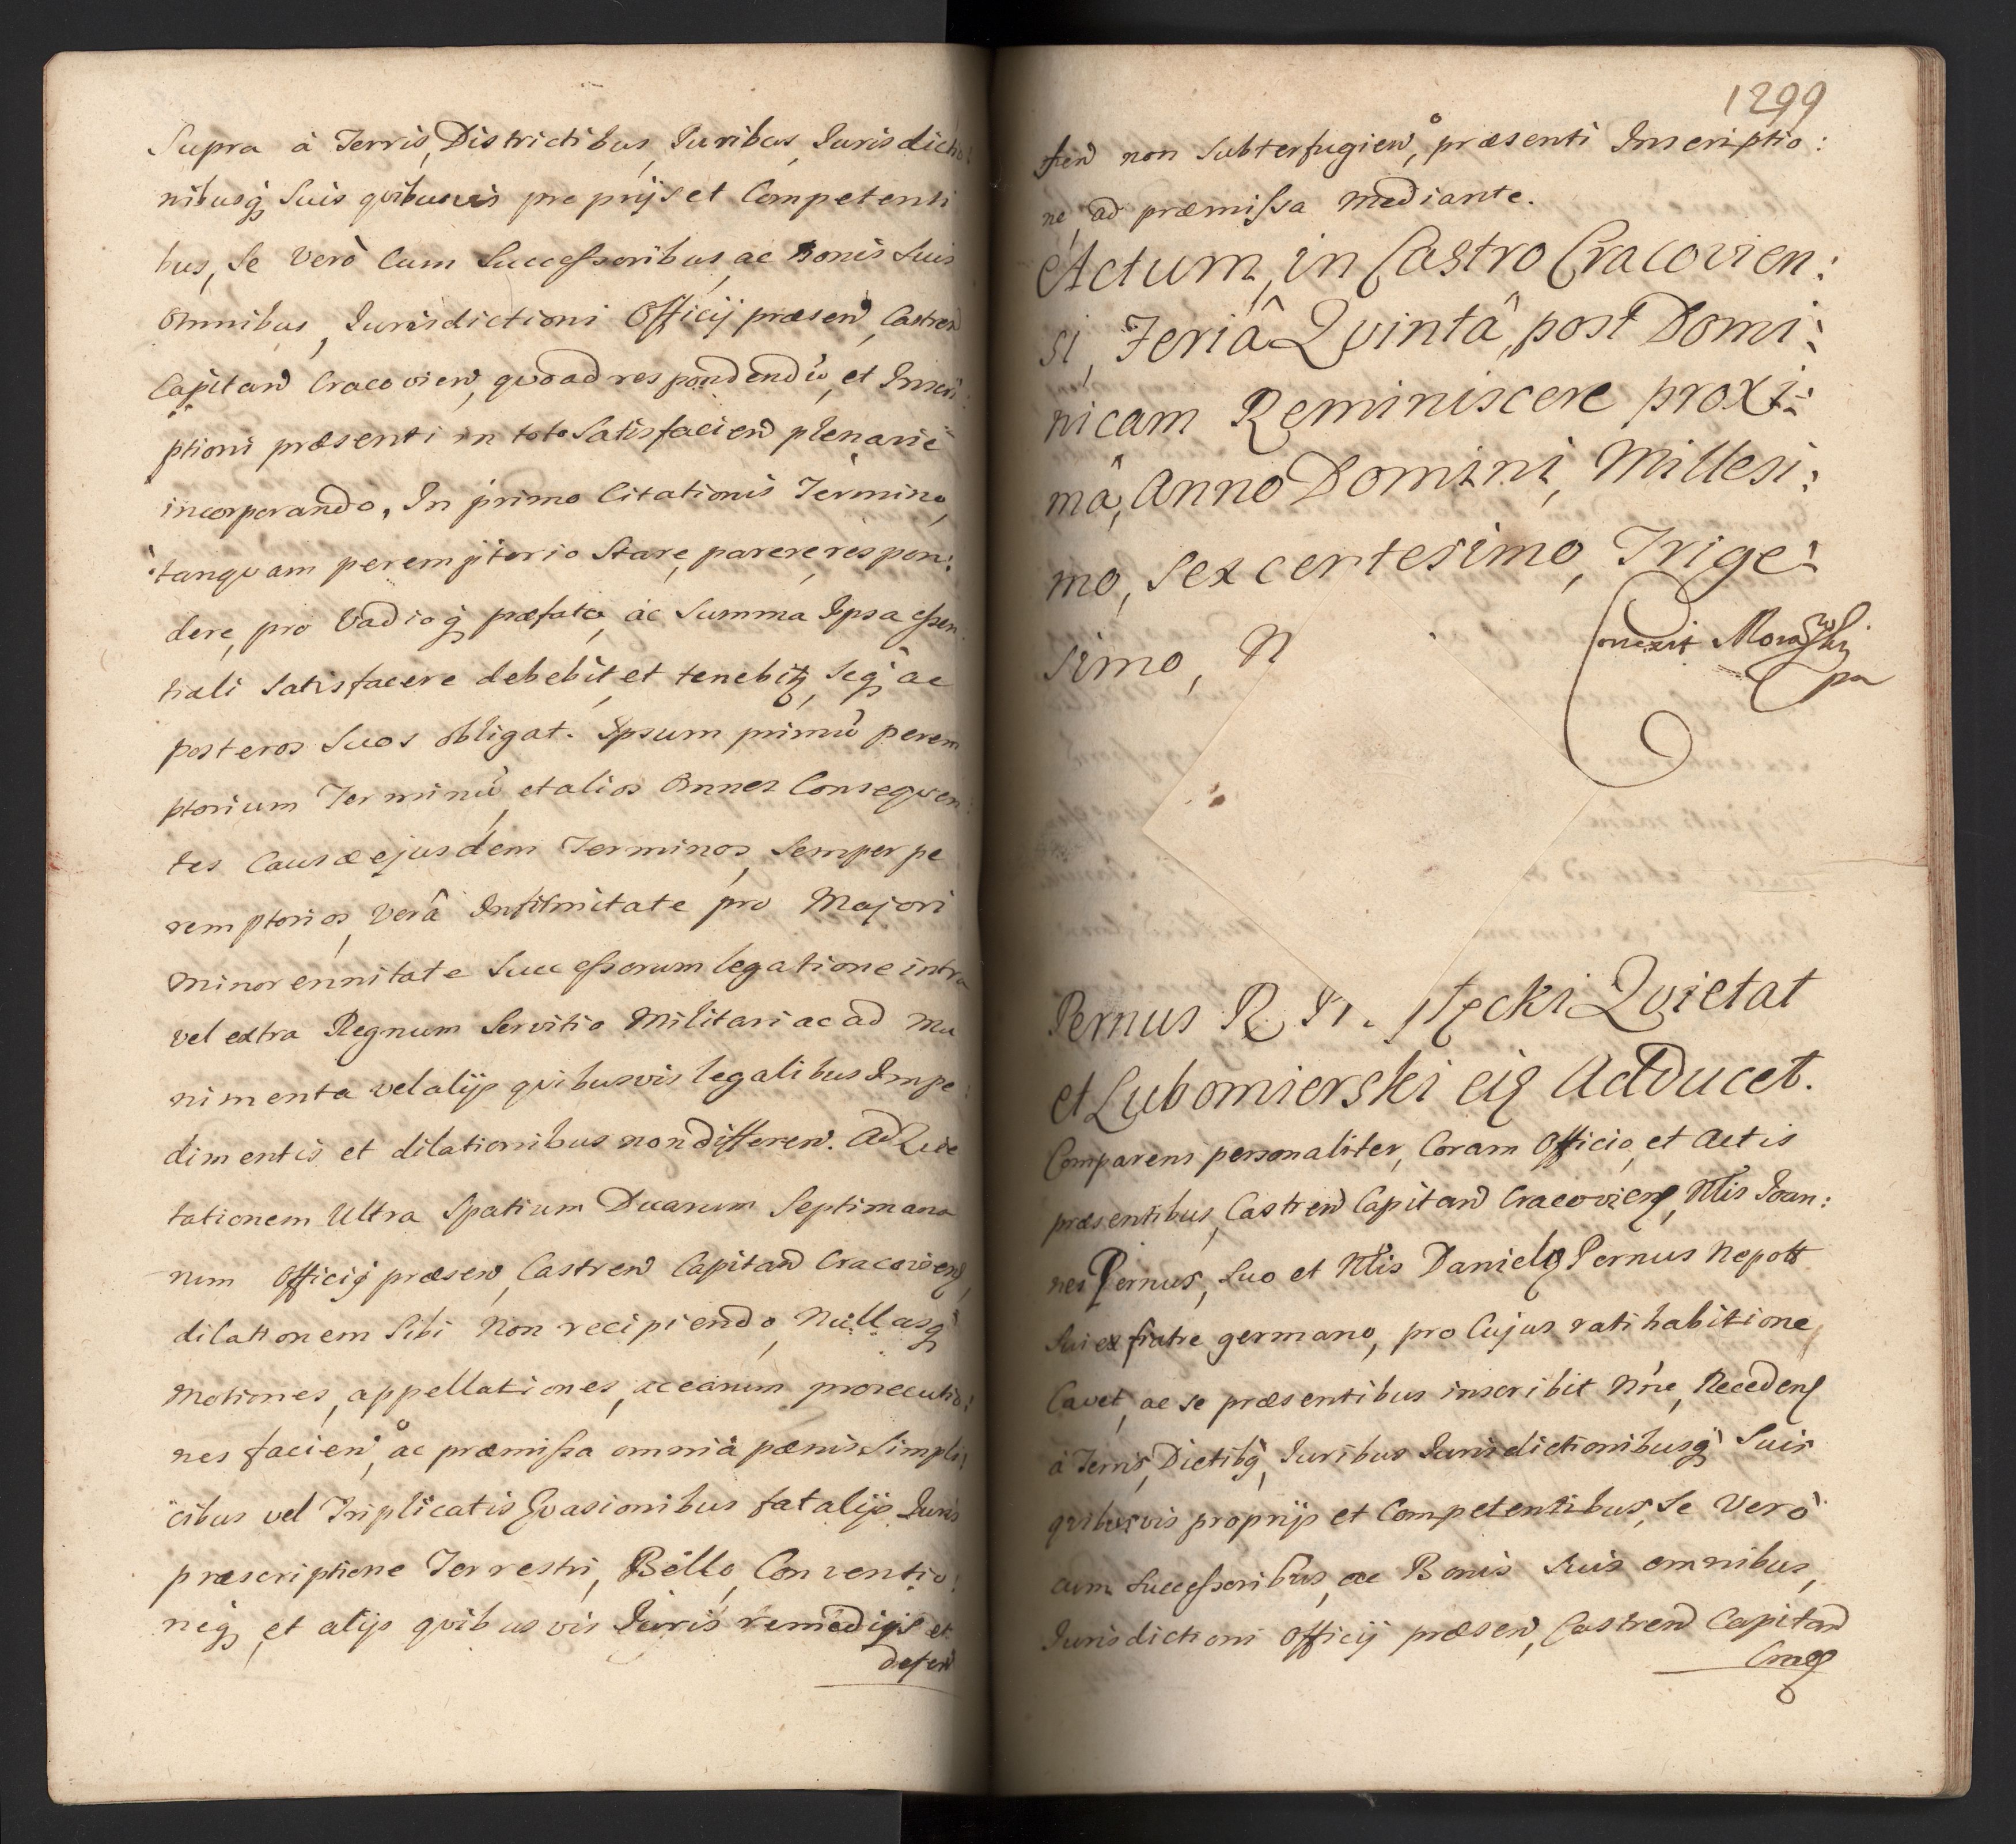 Supra à Terris, Districtibus, Iuribus, Iurisdictio:
nibusq́ Suis qvibusvis proprijs et Competenti
bus, Se Verò Cum Successoribus, ac Bonis Suis
Omnibus, Iurisdictioni Officij præsen, Castren
Capitan Cracovien, qvoad respondendū, et Inscri:
ptioni præsenti in toto Satisfacien plenarie
incorporando, In primo Citationis Termino,
tanqvam peremptorio Stare, parere, respon:
dere, pro Vadioq́ præfato, ac Summa Ipsa essen
tiali Satisfacere debebit, et tenebit, Seq́ ac
posteros Suos obligat. Ipsum primū perem
ptorium Terminū, et alios Omnes Conseqven:
tes Causæ ejusdem Terminos, Semper pe
remptorios, Verâ Infirmitate pro Majori
Minorennitate Successorum legatione intra
vel extra Regnum Servitio Militari ac ad Mu
nimenta vel alijs qvibusvis legalibus Impe:
dimentis et dilationibus non differen. Ad
tationem Ultra Spatium Duarum Septimana
rum Officij præsen, Castren Capitan Cracovien,
dilationem Sibi Non recipiendo, Nullasq́
Motiones, appellationes, ac earum prosecutio:
nes facien, ac præmissa omnia pænis Simpli:
cibus vel Triplicatis Evasionibus fatalijs Iuris
præscriptione Terrestri, Bello, Conventio:
niq́, et alijs qvibusvis Iuris remedijs et
defen
1299
sien non Subterfugien, præsenti Inscriptio:
ne, ad præmissa Mediante.
Actum, in Castro Cracovien:
si, Feriâ Qvintâ, post Domi:
nicam Reminiscere proxi:
mâ, Anno Domini, Millesi:
mo, Sexcentesimo, Trige:
simo, N
Conexit Morawski
Pernus R. Stęcki Qvietat
et Lubomierski eiq Adducet.
Comparens personaliter, Coram Officio, et Actis
præsentibus, Castren Capitan Cracovien, Nblis Ioan:
nes Pernus, Suo et Nblis Danielis Pernus Nepott
Sui ex fratre germano, pro Cujus ratihabitione
Cavet, ac se præsentibus inscribit Nrie, Recedens
à Terris, Dictibq́, Iuribus Iurisdictionibusq́ Suis
qvibusvis proprijs et Competentibus, Se Verò
cum Successoribus, ac Bonis Suis omnibus,
Iurisdictioni Officij præsen, Castren Capitan
Crac